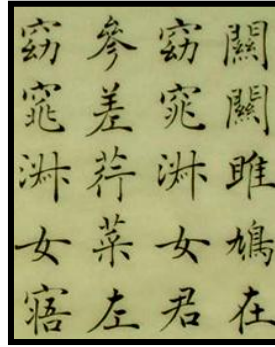 關關雎鳩在
窈窕淑女君
參差荇菜左
窈窕淑女寤